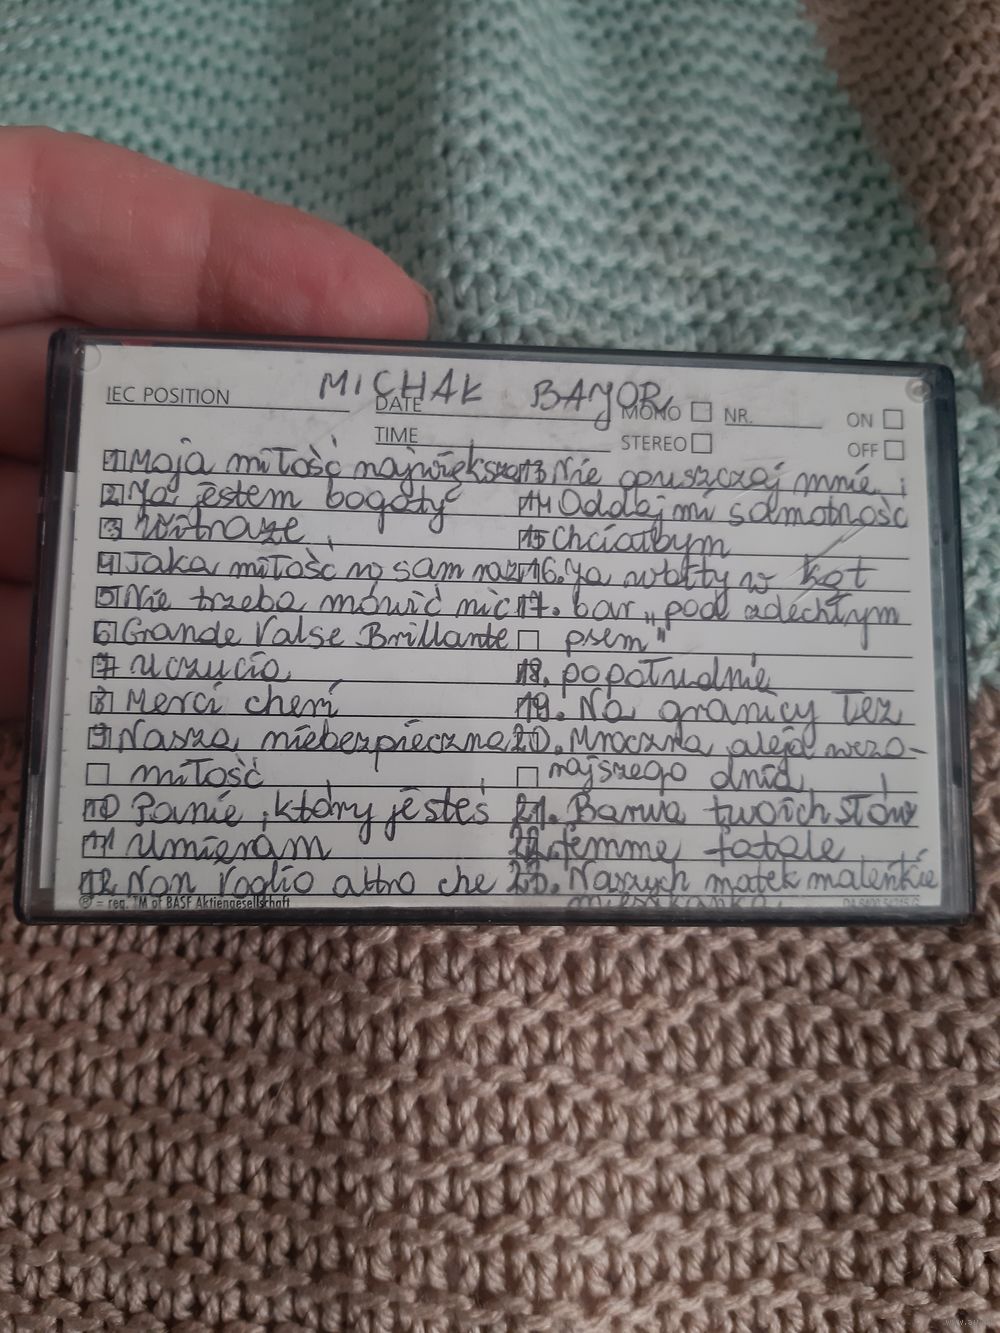 MICHAŁ BAJOR
IEC POSITION
DATE
MONO
NR.
ON
TIME
STEREO
OFF
1 Moja miłość największa
2 Ja jestem bogaty
3 Witraże
4 Jaka miłość no sam raz
5 Nie trzeba mówić nic
6 Grande Valse Brillante
7 Uczucia
8 Merci cheri
9 Nasza niebezpieczna
miłość
10 Panie, który jesteś
11 Umieram
12 Non Voglio altro che
13 Nie opuszczaj mnie
14 Oddaj mi samotność
15 Chciałbym
16. Ja wbity w kąt
17. bar „pod zdechłym
psem"
18. popołudnie
19. Na granicy łez
20. Mroczna aleja wczo-
rajszego dnia
21. Barwa twoich słów
22. femme fatale
23. Naszych matek maleńkie
mieszkanka
® = reg. TM of BASF Aktiengesellschaft